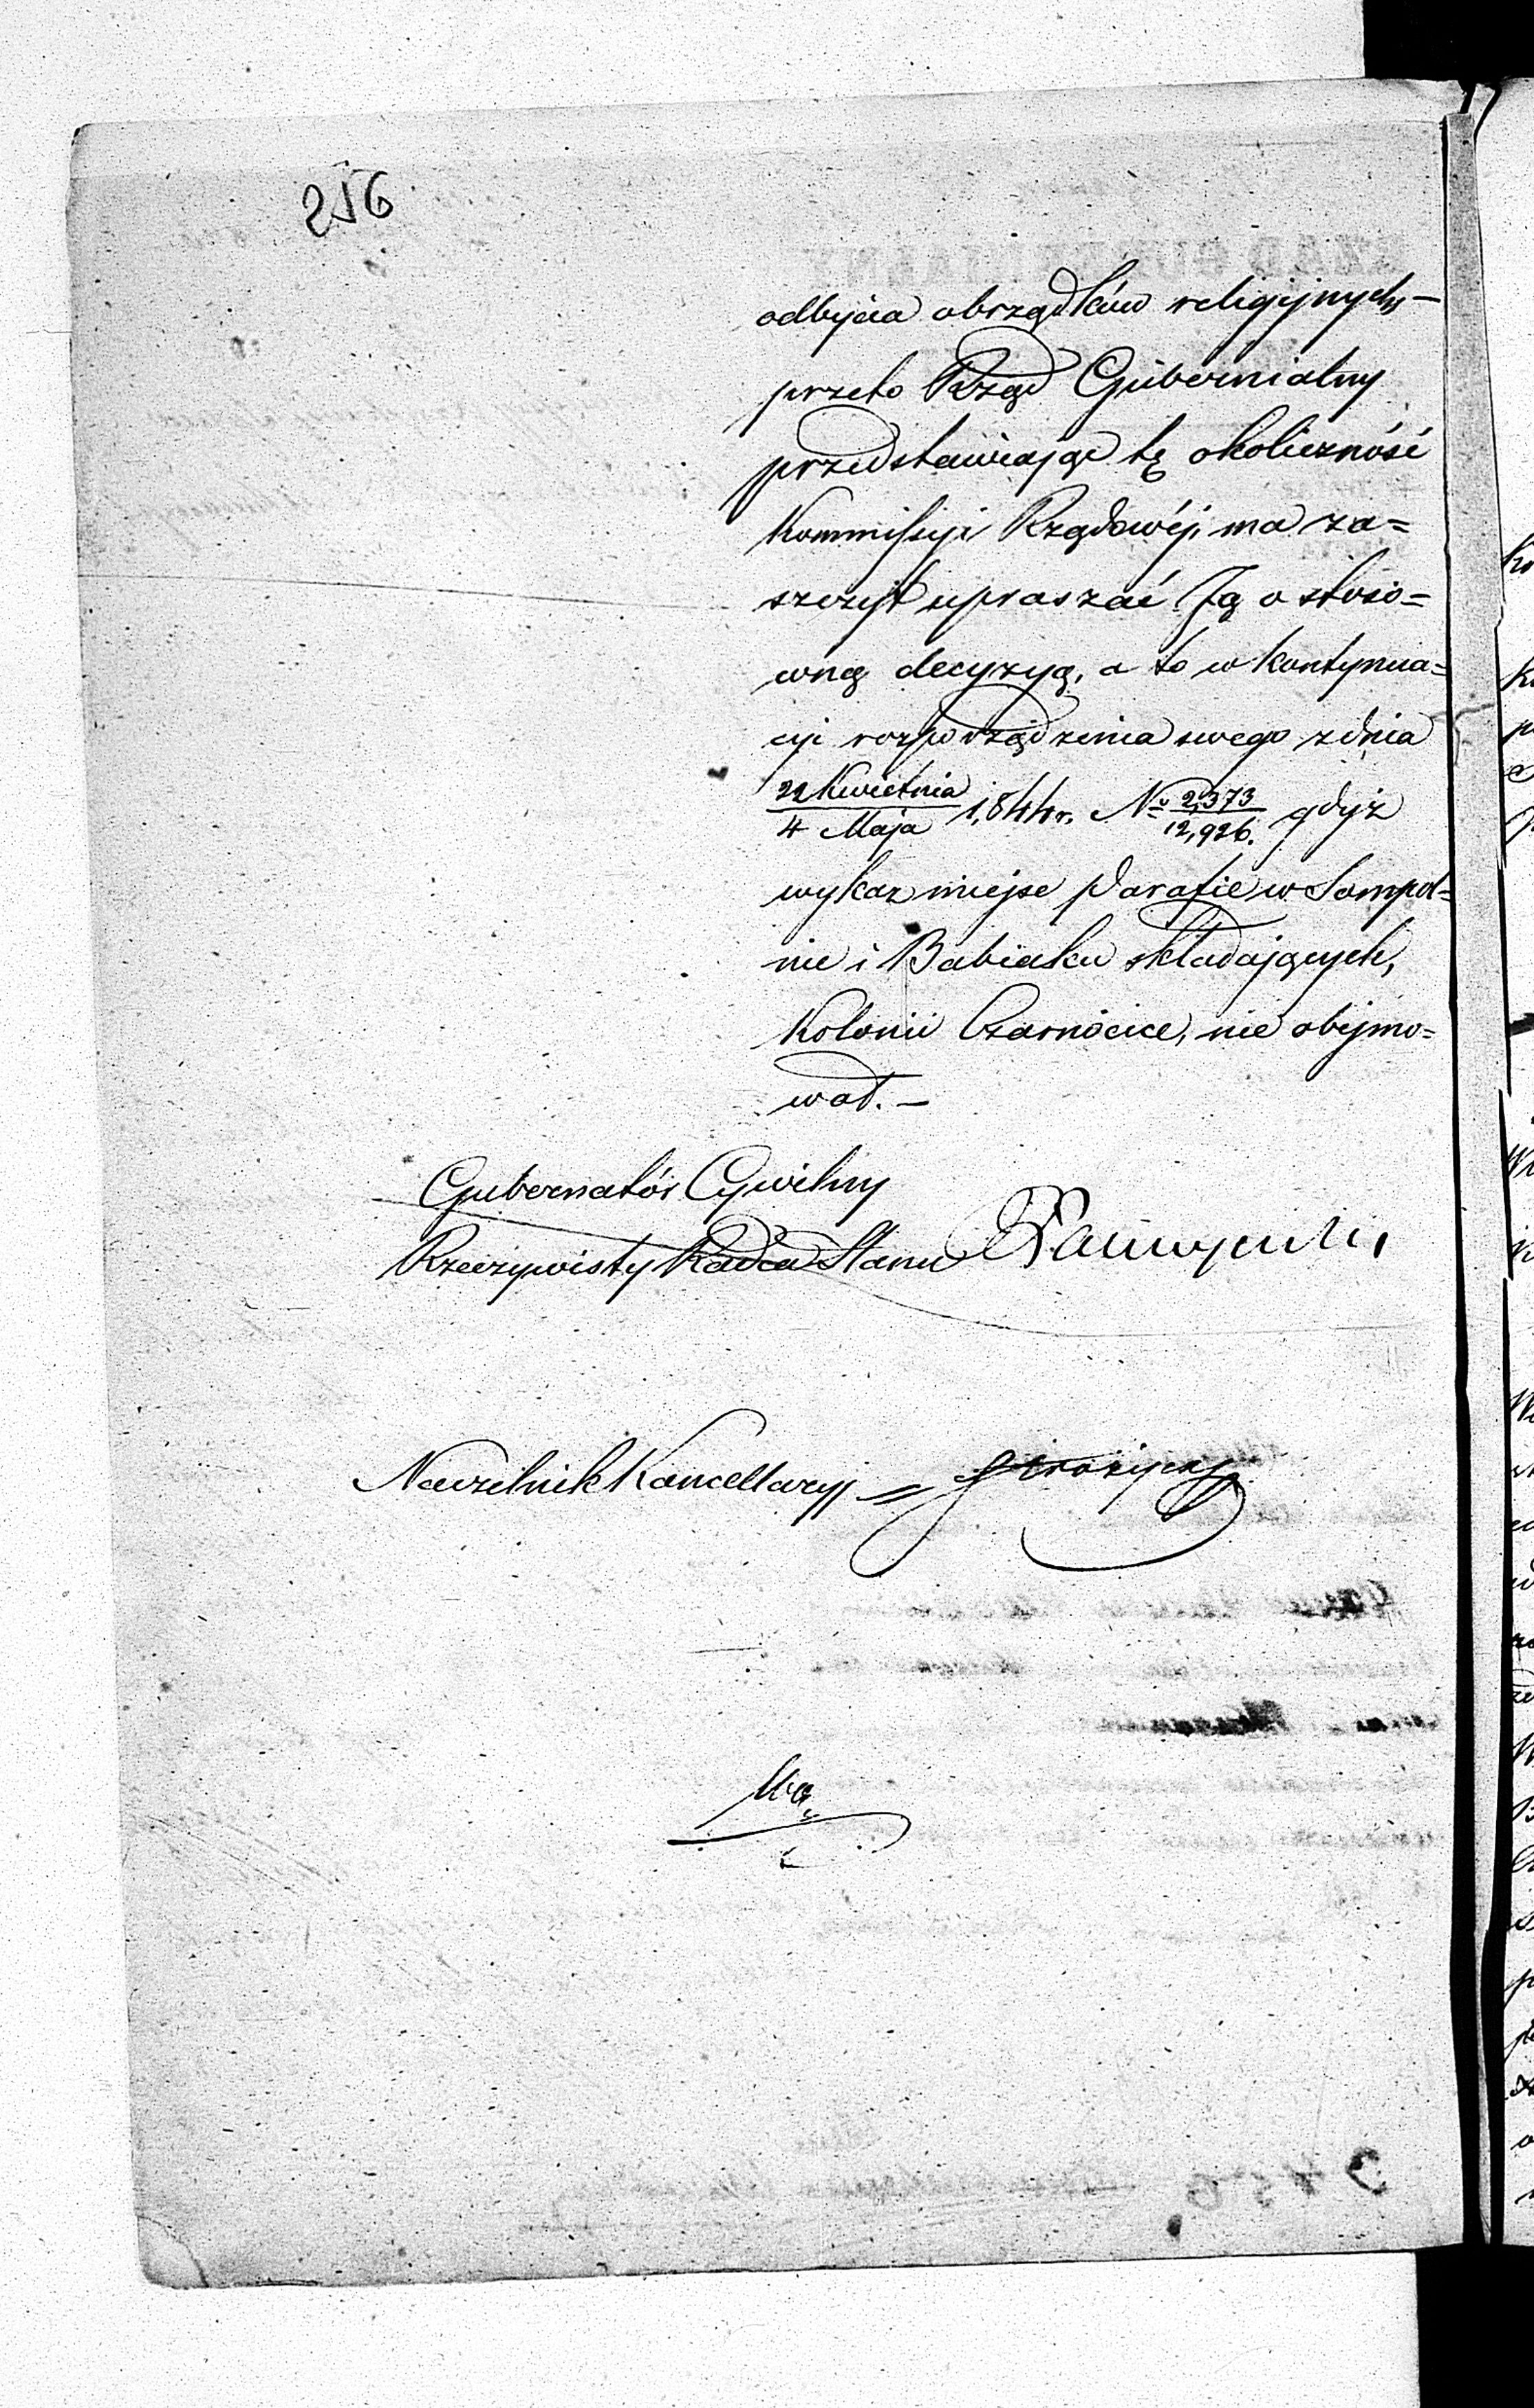 256
odbycia obrządków religijnych —
przeto Rząd Gubernialny
przedstawiając tę okoliczność
Kommissyi Rządowéj, ma za=
szczyt upraszać Ją o stoso=
wną decyzyą, a to w kontynua=
cyi rozporządzenia swego z dnia
22 Kwietnia / 4 Maja 1,844 r. No 2,373 / 12,926. gdyż
wykaz miejsc Parafie w Sompol=
nie i Babiaku składających,
Kolonii Czarnocice, nie obejmo=
wał. —
Gubernator Cywilny
Rzeczywisty Radca Stanu
Naczelnik Kancellaryj